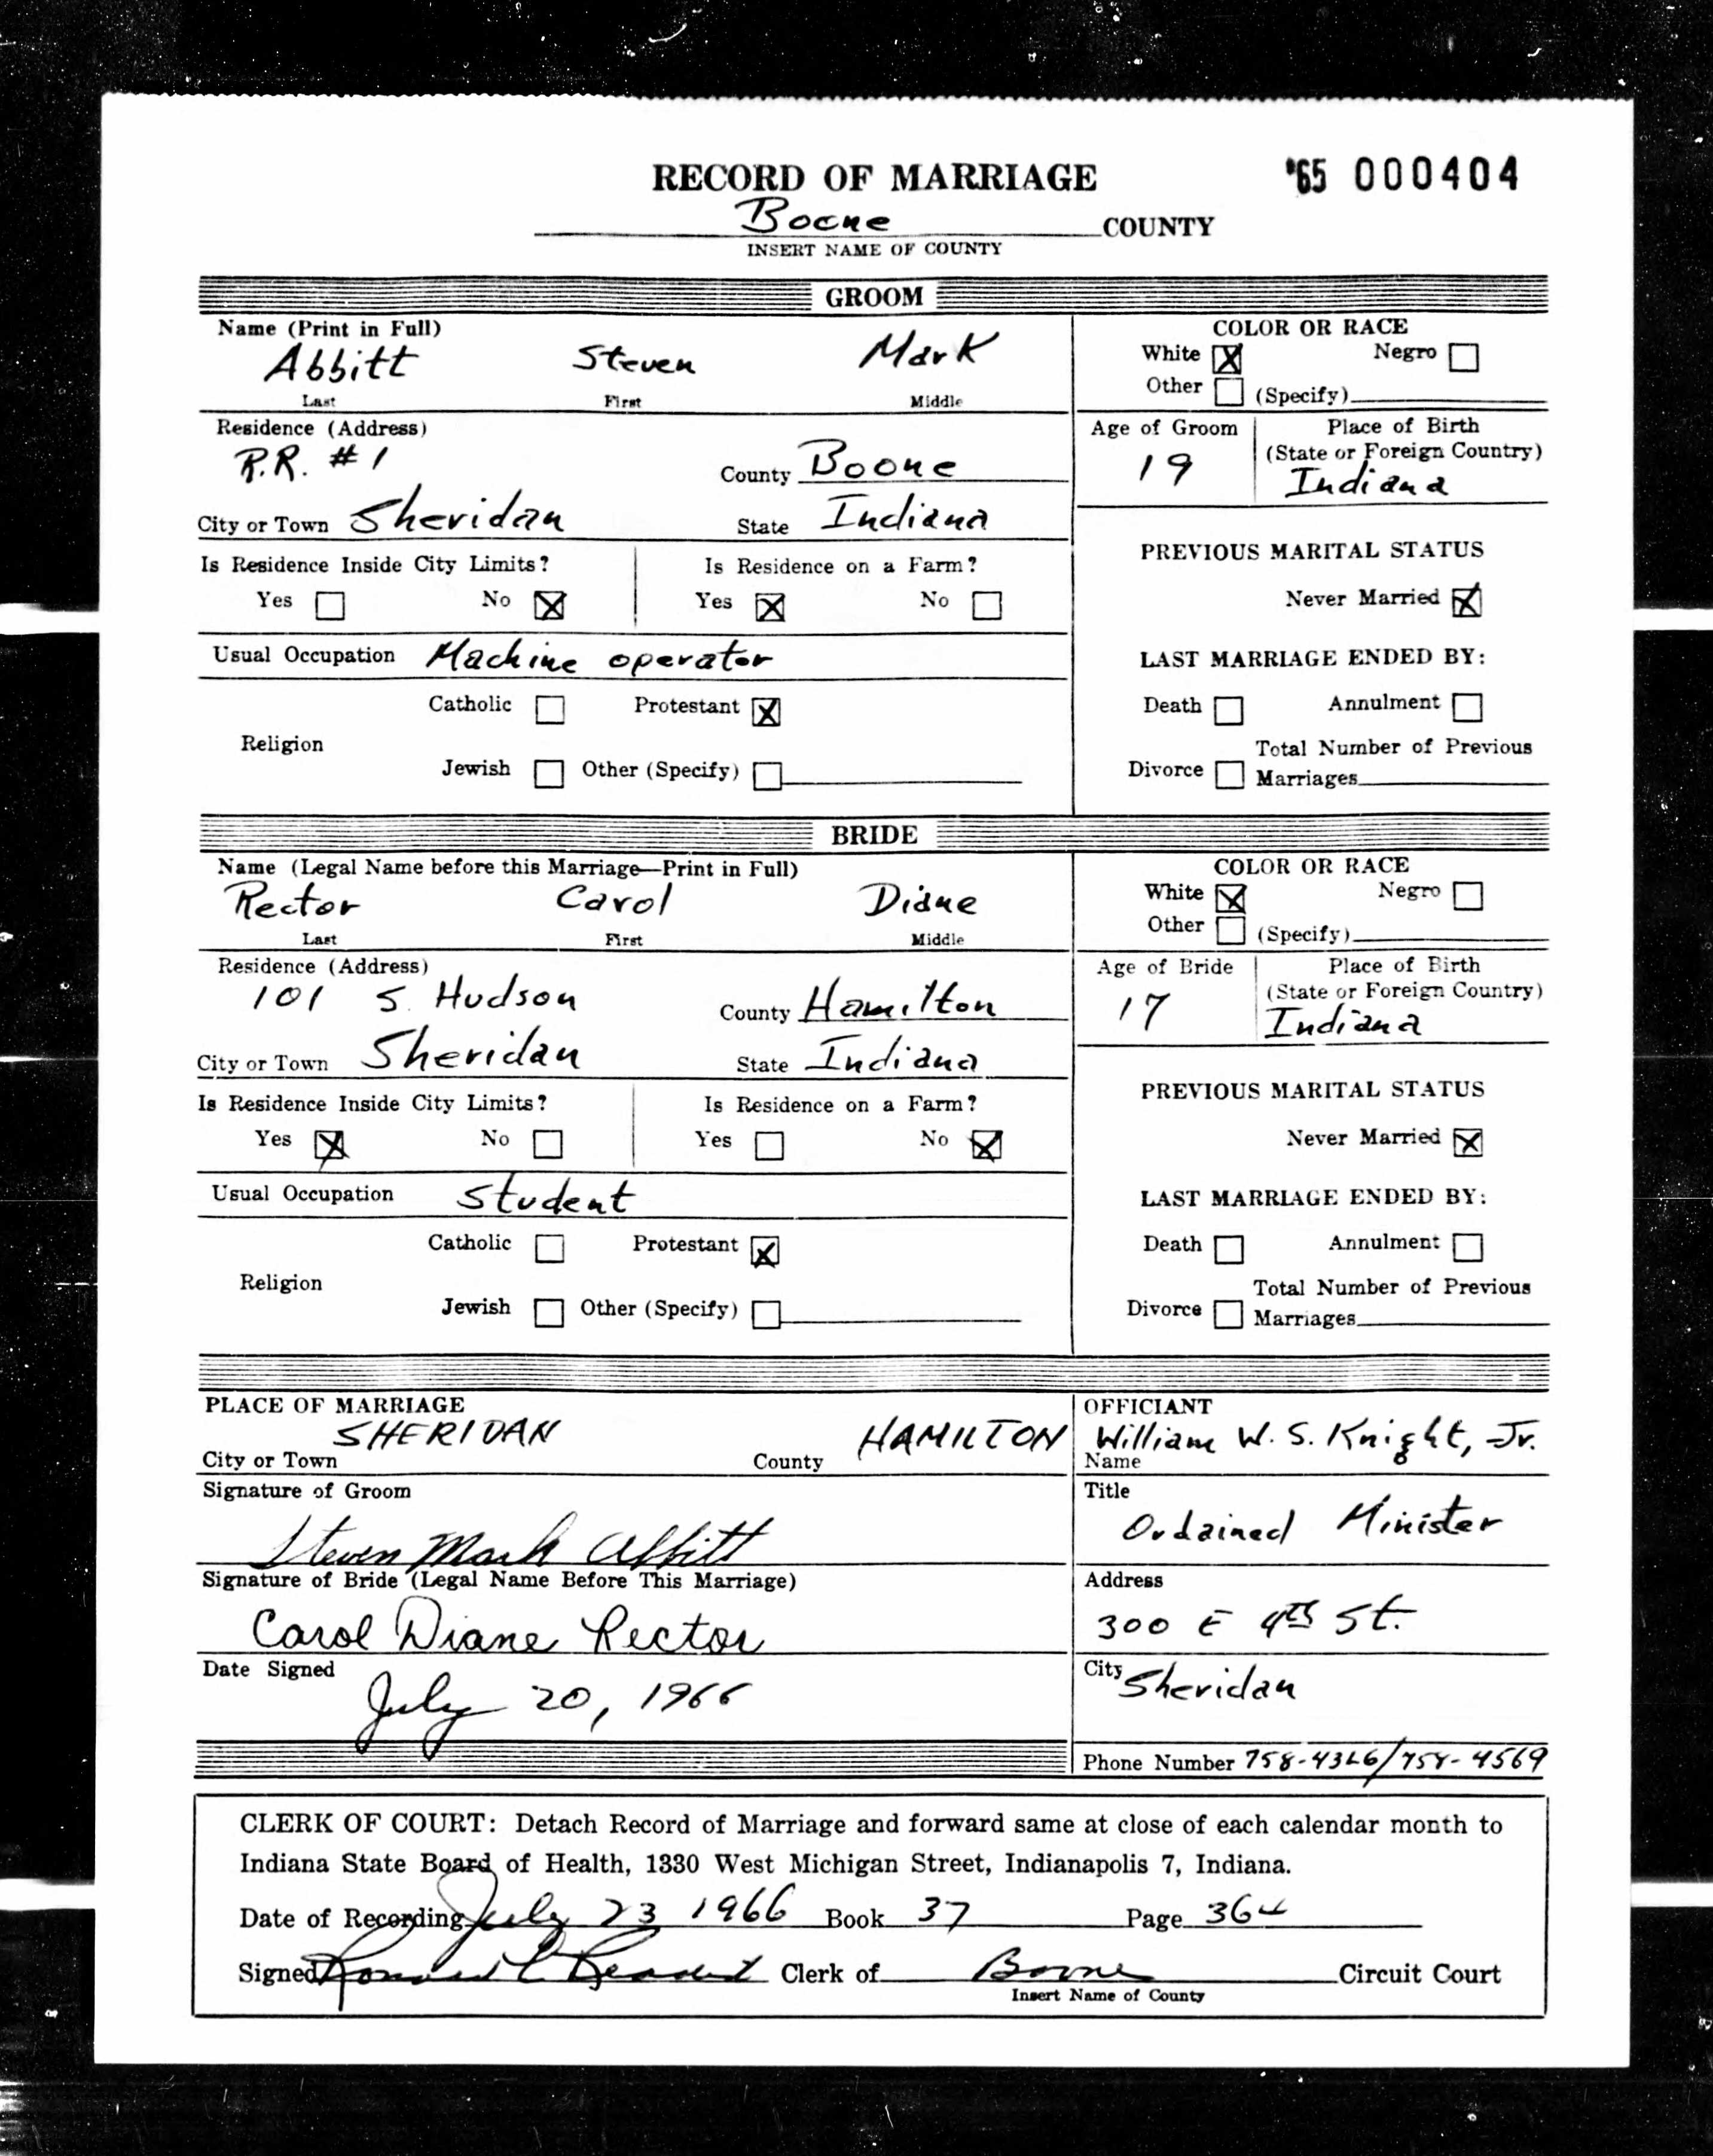 RECORD OF MARRIAGE '65 000404
Boone COUNTY
INSERT NAME OF COUNTY
GROOM
Name (Print in Full) COLOR OR RACE
Abbitt Steven Mark White X Negro
Last First Middle Other (Specify)
Residence (Address) Age of Groom Place of Birth
R.R. #1 County Boone 19 (State or Foreign Country)
Indiana
City or Town Sheridan State Indiana
Is Residence Inside City Limits? Is Residence on a Farm? PREVIOUS MARITAL STATUS
Yes No X Yes X No Never Married X
Usual Occupation Machine operator LAST MARRIAGE ENDED BY:
Catholic Protestant X Death Annulment
Religion Total Number of Previous
Jewish Other (Specify) Divorce Marriages
BRIDE
Name (Legal Name before this Marriage—Print in Full) COLOR OR RACE
Rector Carol Diane White X Negro
Last First Middle Other (Specify)
Residence (Address) Age of Bride Place of Birth
101 S. Hudson County Hamilton 17 (State or Foreign Country)
Indiana
City or Town Sheridan State Indiana
Is Residence Inside City Limits? Is Residence on a Farm? PREVIOUS MARITAL STATUS
Yes X No Yes No X Never Married X
Usual Occupation Student LAST MARRIAGE ENDED BY:
Catholic Protestant X Death Annulment
Religion Total Number of Previous
Jewish Other (Specify) Divorce Marriages
PLACE OF MARRIAGE OFFICIANT
SHERIDAN HAMILTON William W. S. Knight, Jr.
City or Town County Name
Signature of Groom Title
Steven Mark Abbitt Ordained Minister
Signature of Bride (Legal Name Before This Marriage) Address
Carol Diane Rector 300 E 4th St.
Date Signed City Sheridan
July 20, 1966
Phone Number 758-4326/758-4569
CLERK OF COURT: Detach Record of Marriage and forward same at close of each calendar month to
Indiana State Board of Health, 1330 West Michigan Street, Indianapolis 7, Indiana.
Date of Recording July 23 1966 Book 37 Page
Signed Clerk of Boone Circuit Court
Insert Name of County